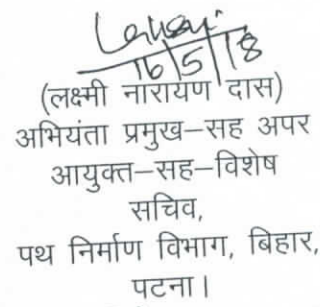 16/5/18
(लक्ष्मी नारायण दास)
अभियंता प्रमुख–सह अपर
आयुक्त–सह–विशेष
सचिव,
पथ निर्माण विभाग, बिहार,
पटना।